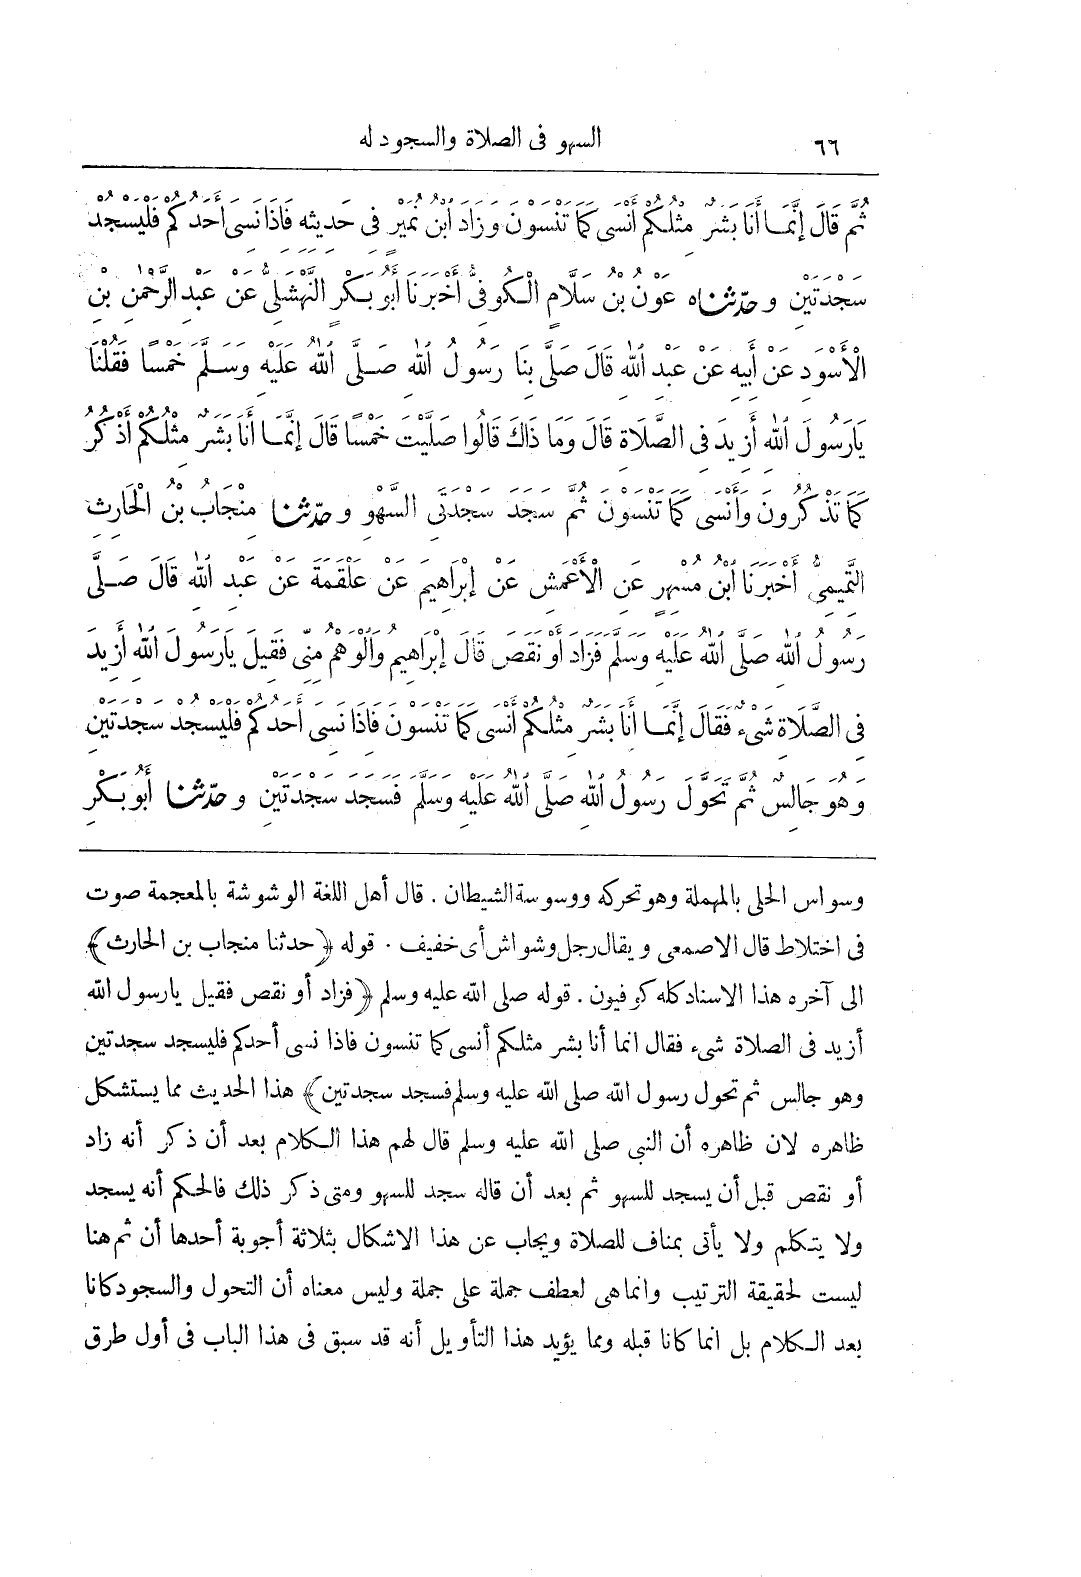 ٦٦ السهو فى الصلاة والسجود له
ثُمَّ قَالَ إِنَّمَا أَنَا بَشَرٌ مِثْلُكُمْ أَنْسَى كَمَا تَنْسَوْنَ وَزَادَ ابْنُ نُمَيْرٍ فِى حَدِيثِهِ فَاذَا نَسِىَ أَحَدُكُمْ فَلْيَسْجُدْ
سَجْدَتَيْنِ و حدثناه عَوْنُ بْنُ سَلَّامٍ الْكُوفِىُّ أَخْبَرَنَا أَبُو بَكْرٍ النَّهْشَلِىُّ عَنْ عَبْدِ الرَّحْمٰنِ بْنِ
الْأَسْوَدِ عَنْ أَبِيهِ عَنْ عَبْدِ اللهِ قَالَ صَلَّى بِنَا رَسُولُ اللهِ صَلَّى اللهُ عَلَيْهِ وَسَلَّمَ خَمْسًا فَقُلْنَا
يَارَسُولَ اللهِ أَزِيدَ فِى الصَّلَاةِ قَالَ وَمَا ذَاكَ قَالُوا صَلَّيْتَ خَمْسًا قَالَ إِنَّمَا أَنَا بَشَرٌ مِثْلُكُمْ أَذْكُرُ
كَمَا تَذْكُرُونَ وَأَنْسَى كَمَا تَنْسَوْنَ ثُمَّ سَجَدَ سَجْدَتَىِ السَّهْوِ و حدّثنا مِنْجَابُ بْنُ الْحَارِثِ
التَّمِيمِىُّ أَخْبَرَنَا ابْنُ مُسْهِرٍ عَنِ الْأَعْمَشِ عَنْ إِبْرَاهِيمَ عَنْ عَلْقَمَةَ عَنْ عَبْدِ اللهِ قَالَ صَلَّى
رَسُولُ اللهِ صَلَّى اللهُ عَلَيْهِ وَسَلَّمَ فَزَادَ أَوْ نَقَصَ قَالَ إِبْرَاهِيمُ وَالْوَهْمُ مِنِّى فَقِيلَ يَارَسُولَ اللهِ أَزِيدَ
فِى الصَّلَاةِ شَىْءٌ فَقَالَ إِنَّمَا أَنَا بَشَرٌ مِثْلُكُمْ أَنْسَى كَمَا تَنْسَوْنَ فَاذَا نَسِىَ أَحَدُكُمْ فَلْيَسْجُدْ سَجْدَتَيْنِ
وَهُوَ جَالِسٌ ثُمَّ تَحَوَّلَ رَسُولُ اللهِ صَلَّى اللهُ عَلَيْهِ وَسَلَّمَ فَسَجَدَ سَجْدَتَيْنِ و حدّثنا أَبُو بَكْرِ
وسواس الحلى بالمهملة وهو تحركه ووسوسة الشيطان . قال أهل اللغة الوشوشة بالمعجمة صوت
فى اختلاط قال الاصمعى ويقال رجل وشواش أى خفيف . قوله ﴿حدثنا منجاب بن الحارث﴾
الى آخره هذا الاسناد كله كوفيون . قوله صلى الله عليه وسلم ﴿فزاد أو نقص فقيل يارسول الله
أزيد فى الصلاة شىء فقال انما أنا بشر مثلكم أنسى كما تنسون فاذا نسى أحدكم فليسجد سجدتين
وهو جالس ثم تحول رسول الله صلى الله عليه وسلم فسجد سجدتين﴾ هذا الحديث مما يستشكل
ظاهره لان ظاهره أن النبى صلى الله عليه وسلم قال لهم هذا الكلام بعد أن ذكر أنه زاد
أو نقص قبل أن يسجد للسهو ثم بعد أن قاله سجد للسهو ومتى ذكر ذلك فالحكم أنه يسجد
ولا يتكلم ولا يأتى بمناف للصلاة ويجاب عن هذا الاشكال بثلاثة أجوبة أحدها أن ثم هنا
ليست لحقيقة الترتيب وانما هى لعطف جملة على جملة وليس معناه أن التحول والسجود كانا
بعد الكلام بل انما كانا قبله ومما يؤيد هذا التأويل أنه قد سبق فى هذا الباب فى أول طرق